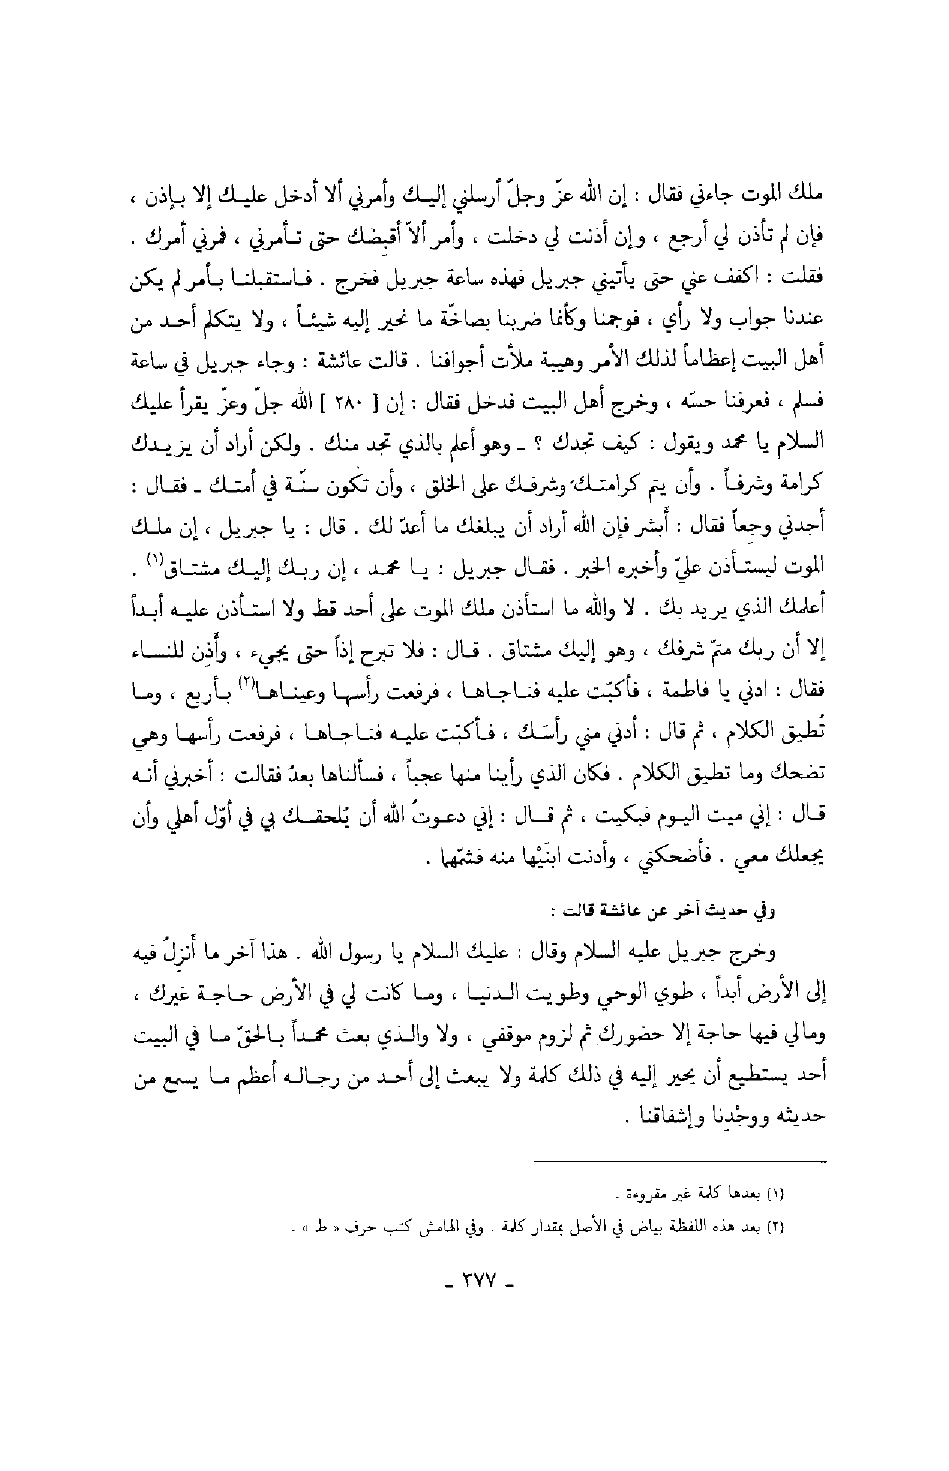 ملك الموت جاءني فقال : إن الله عزّ وجلّ أرسلني إليك وأمرني ألا أدخل عليك إلا بإذن ،
فإن لم تأذن لي أرجع ، وإن أذنت لي دخلت ، وأمر ألاّ أقبِضك حتى تأمرني ، فمرني أمرك .
فقلت : اكفف عني حتى يأتيني جبريل فهذه ساعة جبريل فخرج . فاستقبلنا بأمر لم يكن
عندنا جواب ولا رأي ، فوجمنا وكأنما ضربنا بصاخّة ما نحير إليه شيئاً ، ولا يتكلم أحد من
أهل البيت إعظاماً لذلك الأمر وهيبة ملأت أجوافنا . قالت عائشة : وجاء جبريل في ساعة
فسلم ، فعرفنا حسّه ، وخرج أهل البيت فدخل فقال : إن [ ٢٨٠ ] الله جلّ وعزّ يقرأ عليك
السلام يا محمد ويقول : كيف تجدك ؟ ـ وهو أعلم بالذي تجد منك . ولكن أراد أن يزيدك
كرامة وشرفاً . وأن يتم كرامتك وشرفك على الخلق ، وأن تكون سنّة في أمتك ـ فقال :
أجدني وجِعاً فقال : أبشر فإن الله أراد أن يبلغك ما أعدّ لك . قال : يا جبريل ، إن ملك
الموت ليستأذن عليّ وأخبره الخبر . فقال جبريل : يا محمد ، إن ربك إليك مشتاق(١) .
أعلمك الذي يريد بك . لا والله ما استأذن ملك الموت على أحد قط ولا استأذن عليه أبداً
إلا أن ربك متمّ شرفك ، وهو إليك مشتاق . قال : فلا تبرح إذاً حتى يجيء ، وأَذِن للنساء
فقال : ادني يا فاطمة ، فأكبّت عليه فناجاها ، فرفعت رأسها وعيناها(٢) بأربع ، وما
تُطيق الكلام ، ثم قال : أدني مني رأسَك ، فأكبّت عليه فناجاها ، فرفعت رأسها وهي
تضحك وما تطيق الكلام . فكان الذي رأينا منها عجباً ، فسألناها بعدُ فقالت : أخبرني أنه
قال : إني ميت اليوم فبكيت ، ثم قال : إني دعوتُ الله أن يُلحقك بي في أوّل أهلي وأن
يجعلك معي . فأضحكني ، وأدنت ابنَيْها منه فشمّها .
وفي حديث آخر عن عائشة قالت :
وخرج جبريل عليه السلام وقال : عليك السلام يا رسول الله . هذا آخر ما أَنزِلُ فيه
إلى الأرض أبداً ، طوي الوحي وطويت الدنيا ، وما كانت لي في الأرض حاجة غيرك ،
ومالي فيها حاجة إلا حضورك ثم لزوم موقفي ، ولا والذي بعث محمداً بالحقّ ما في البيت
أحد يستطيع أن يحير إليه في ذلك كلمة ولا يبعث إلى أحد من رجاله أعظم ما يسمع من
حديثه ووجْدِنا وإشفاقنا .
(١) بعدها كلمة غير مقروءة .
(٢) بعد هذه اللفظة بياض في الأصل بمقدار كلمة . وفي الهامش كتب حرف « ط » .
ـ ٣٧٧ ـ